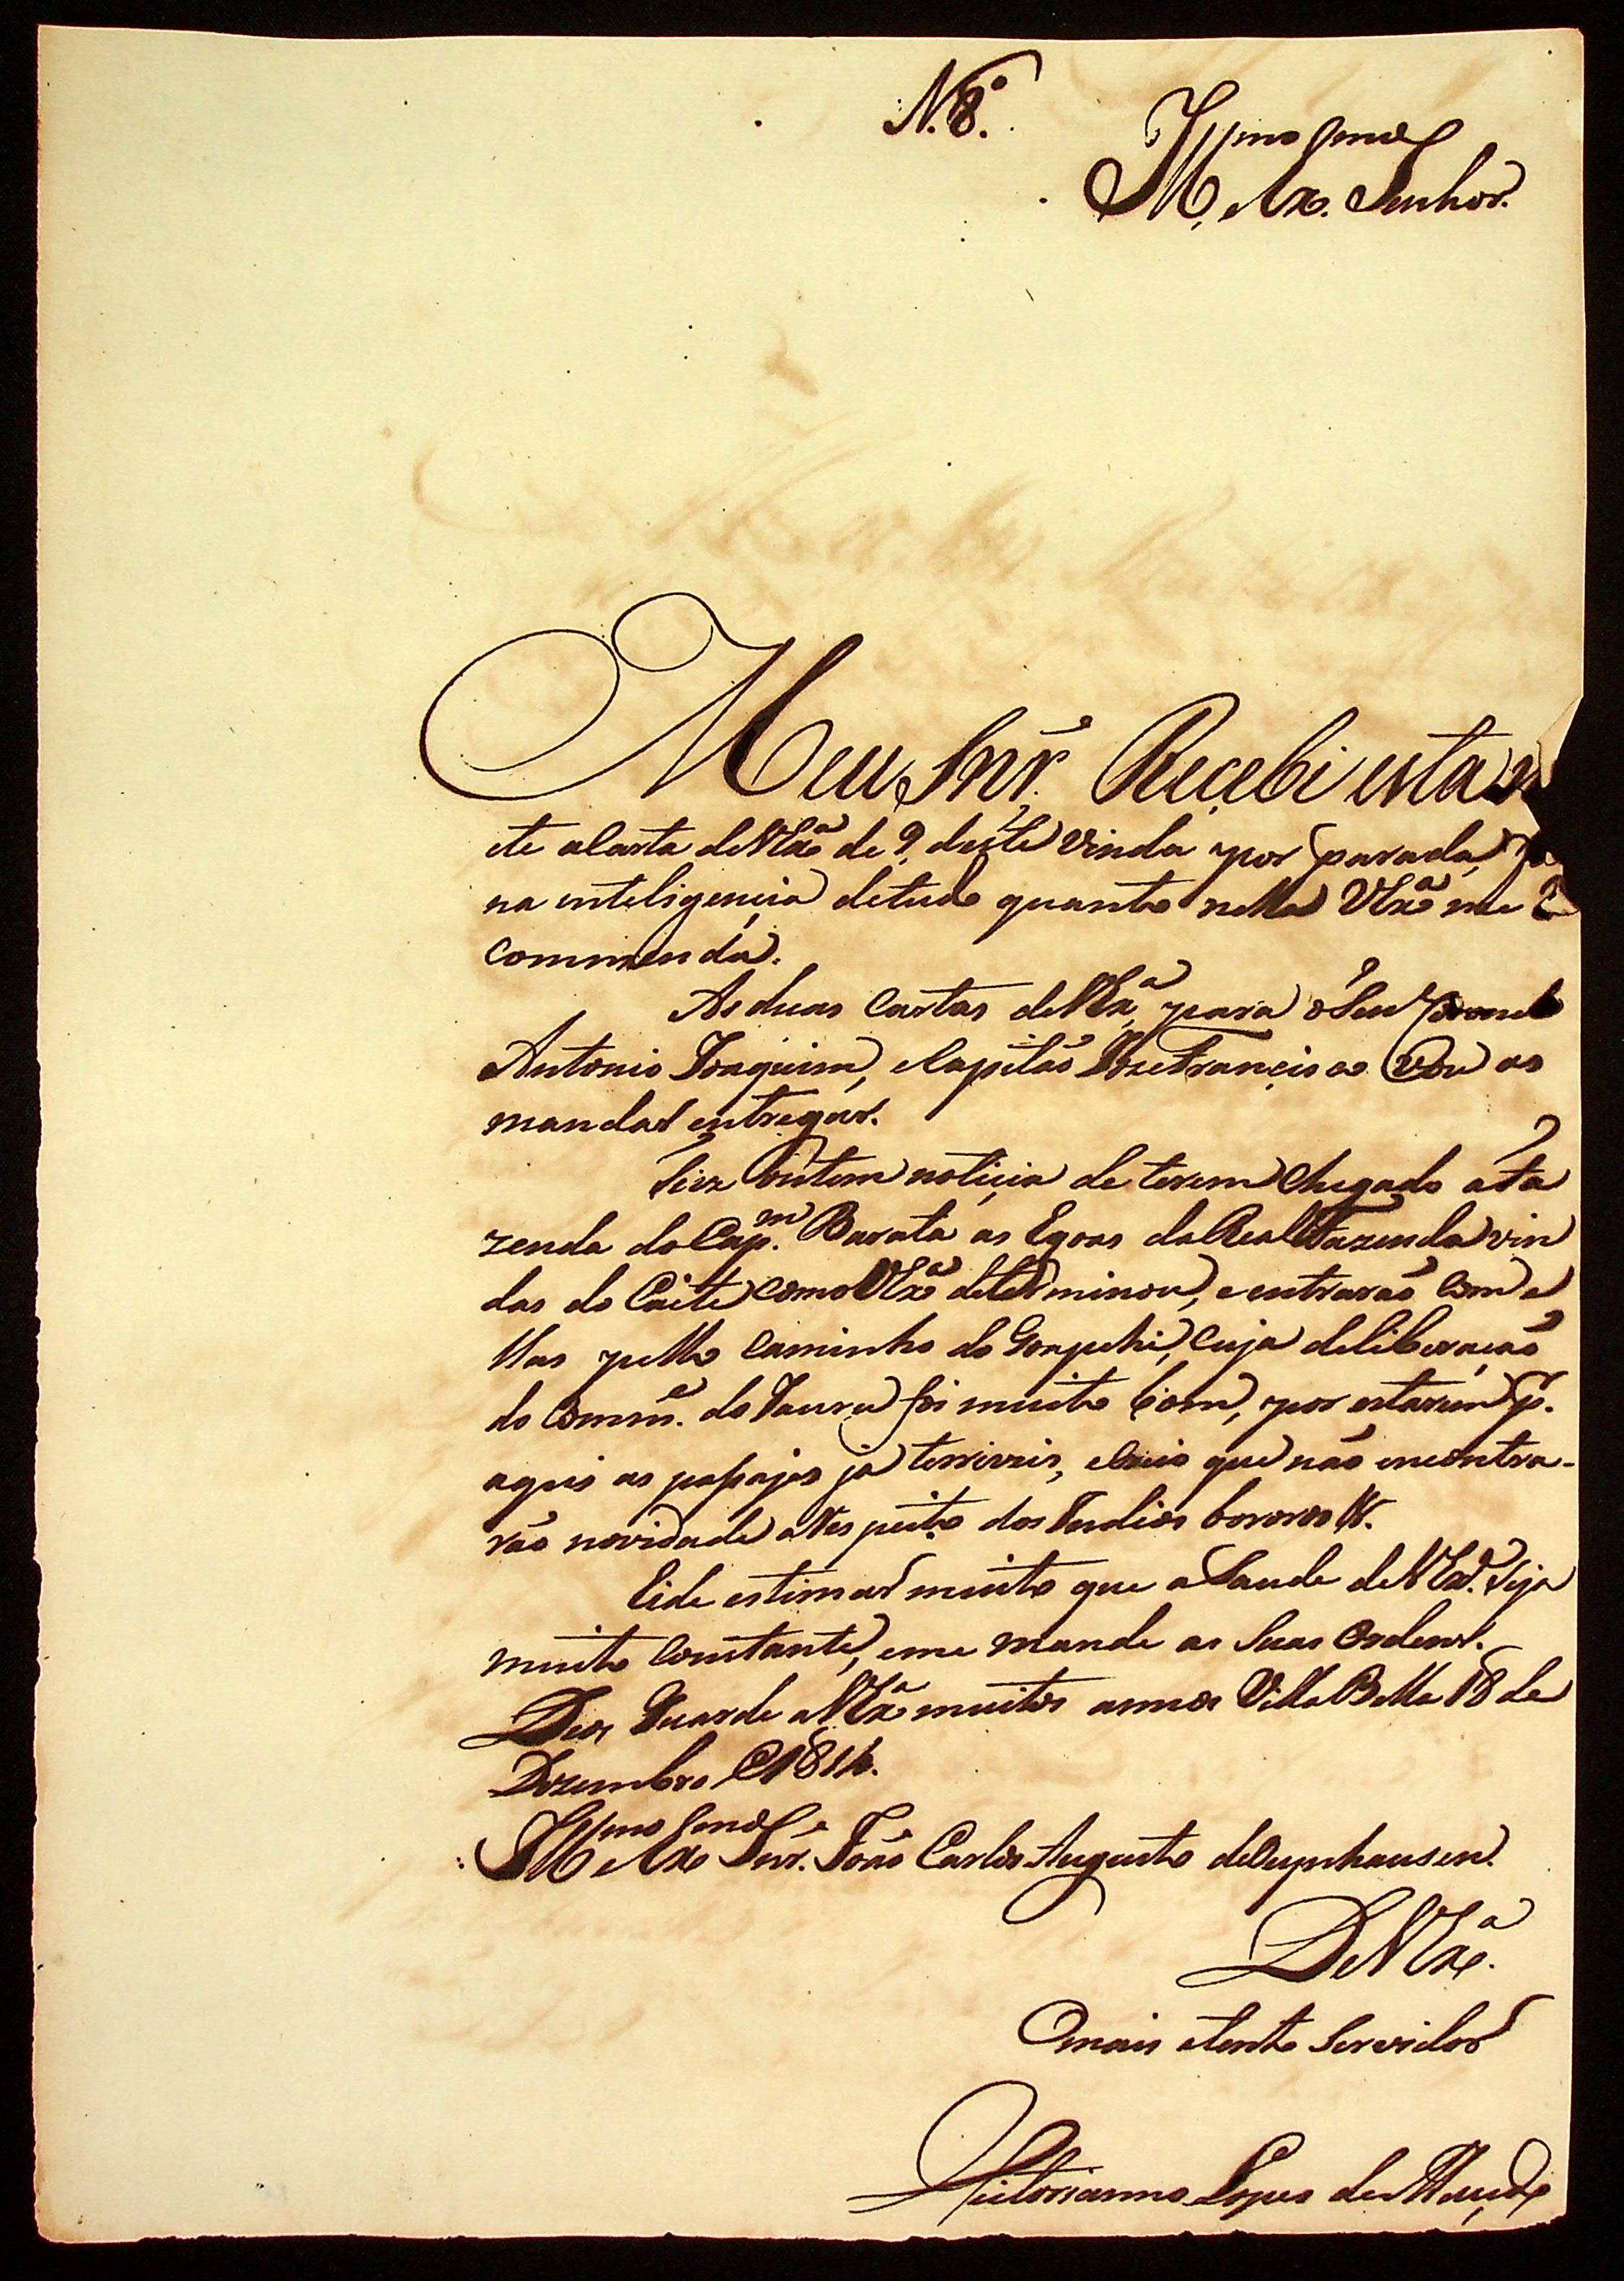 N.º 8.
Illmo e Exmo Senhor.
Meu Snr. Recebi esta
te a Carta de VExª de 9. deste vinda por parada,
na inteligençia de tudo quanto nella VExª me
commenda.
As duas Cartas de VExª, para o Seu
Antonio Joaquim, e Capitaõ Joze Françisco Vou as
mandar entregar.
Tive ontem notiçia de terem Chegado a Fa
zenda do Capm. Barata as Egoas da Real Fazenda vin
das do Caité como VExª determinou, e entraraõ Com e
llas pello Caminho do Goapehi, Cuja deliberaçaõ
do Comme. do Jauru foi muito bom, por estarem pª.
aqui as pasajes ja terriveis, e que naõ encontra-
raõ novidade a Respeito dos Indios bororos &.
Eide estimar muito que a Saude de VExª. Seja
muito Constante, e me mande as Suas Ordens.
Deos Guarde a VExª muitos annos Villa Bella 18 de
Dezembro de 1816.
Illmo e Exmo Snr. Joaõ Carlos Augusto de Oeynhausen.
De VExª.
O mais atento Servidor
Victorianno Lopes de